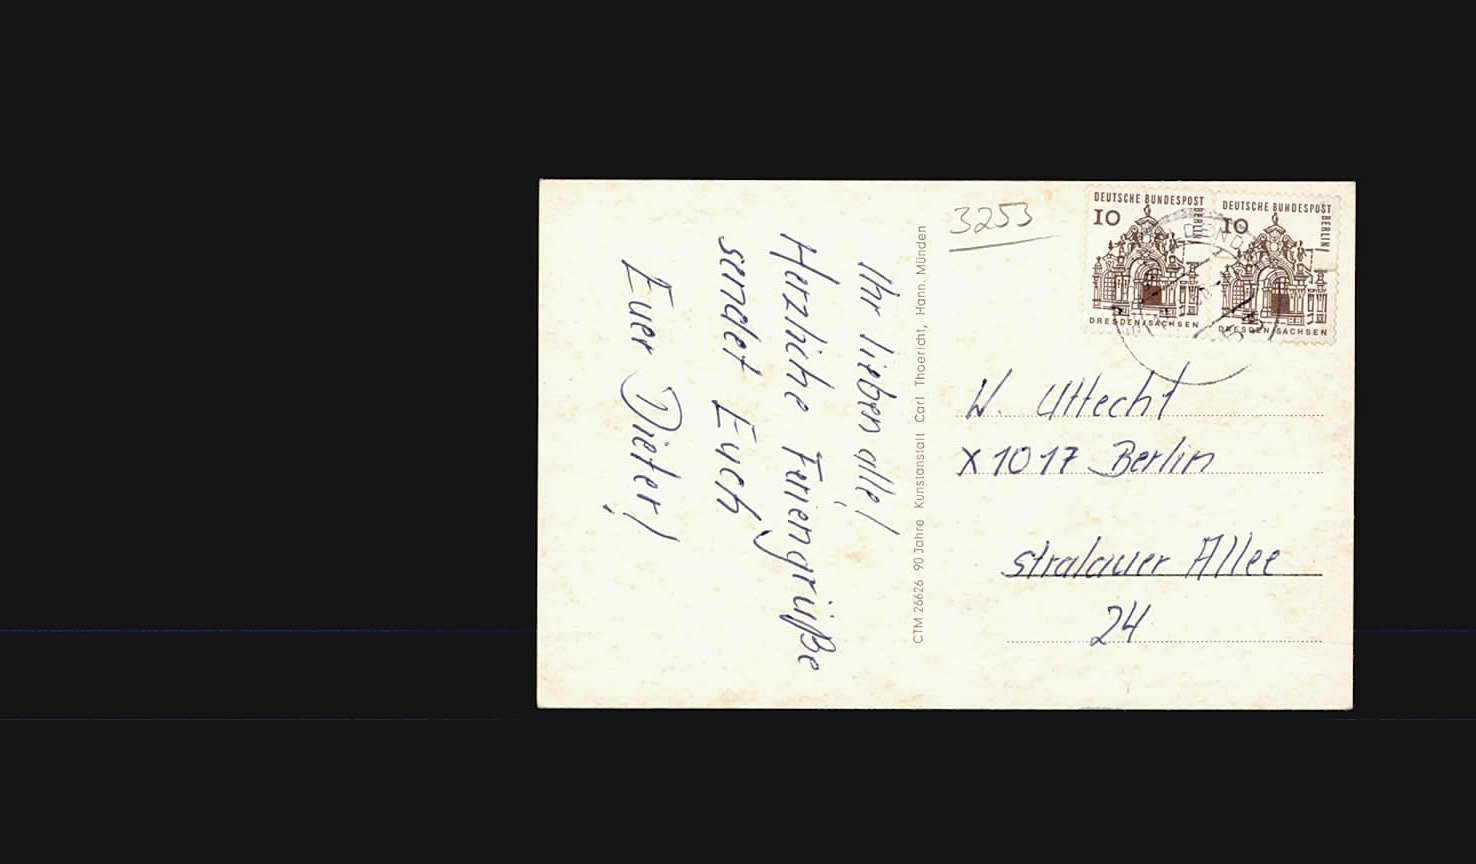 Ihr lieben alle!
Herzliche Feriengrüße
sendet Euch
Euer Dieter!
CTM 26626 90 Jahre Kunstanstalt Carl Thoericht, Hann. Münden
3253
DEUTSCHE BUNDESPOST
BERLIN
10
DRESDEN/SACHSEN
DEUTSCHE BUNDESPOST
BERLIN
10
DRESDEN/SACHSEN
W. Uttecht
X 1017 Berlin
Stralauer Allee
24